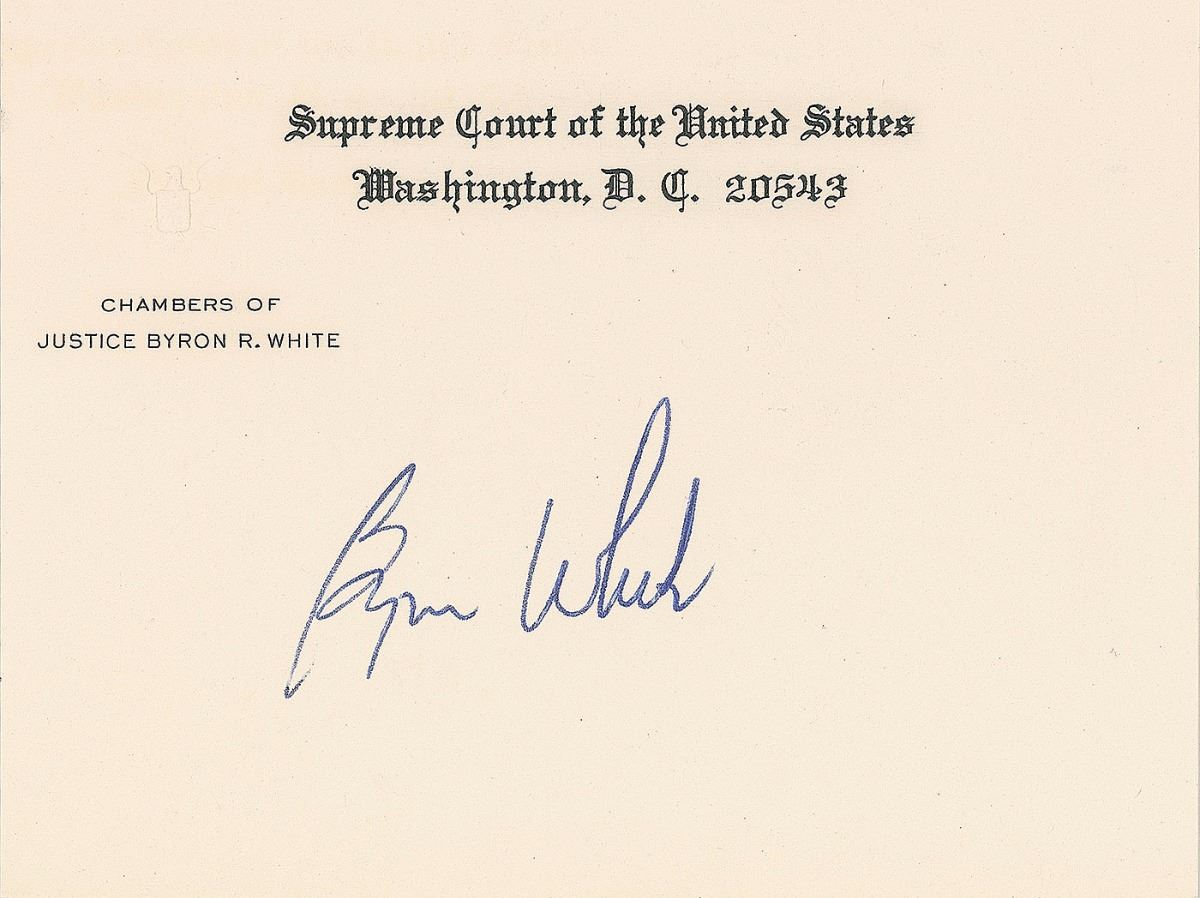 Supreme Court of the United States
Washington, D. C. 20543
CHAMBERS OF
JUSTICE BYRON R. WHITE
Byron White